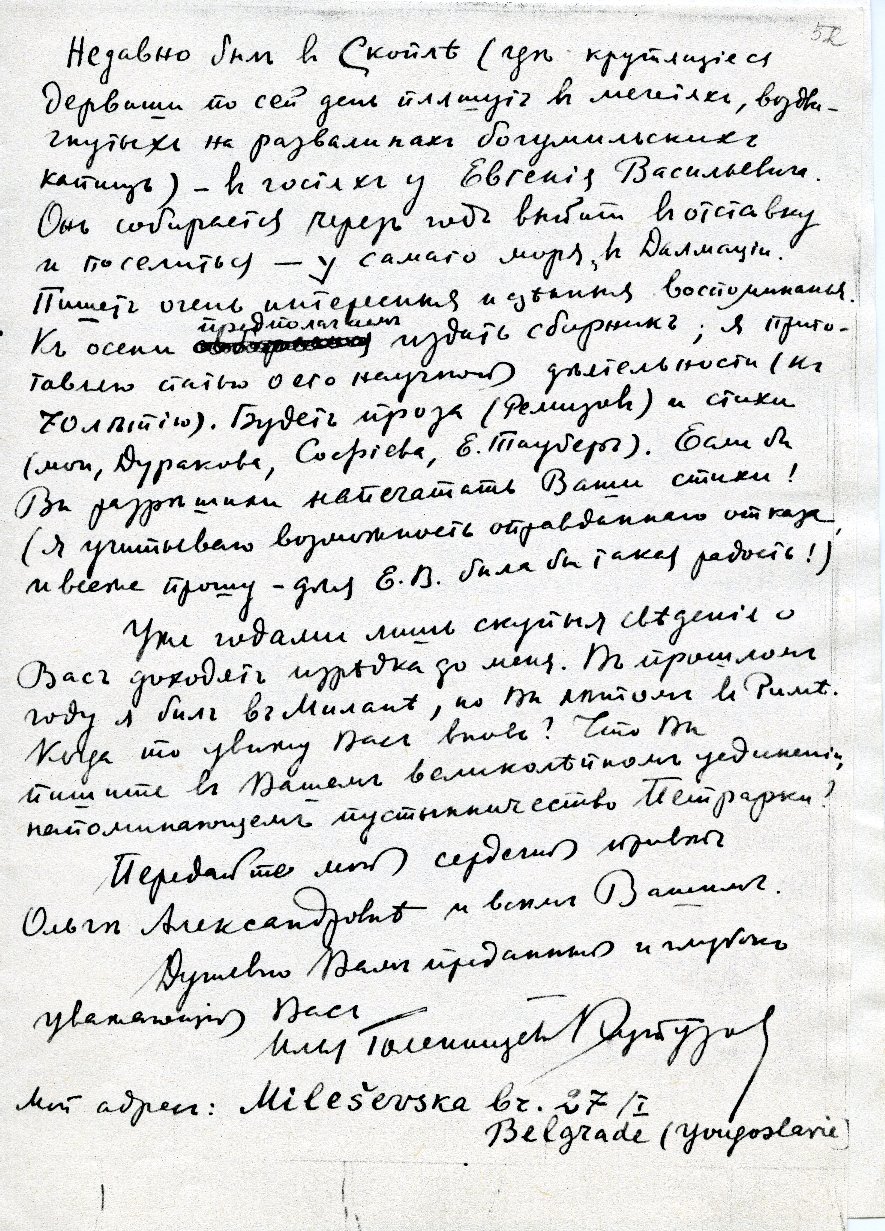 52
Недавно былъ въ Скоплѣ (гдѣ крутящіеся
дервиши по сей день пляшутъ въ мечетяхъ, воздви-
гнутыхъ на развалинахъ богумильскихъ
капищъ) – въ гостяхъ у Евгенія Васильевича.
Онъ собирается черезъ годъ выйти въ отставку
и поселиться – у самаго моря, въ Далмаціи.
Пишетъ очень интересныя и цѣнныя воспоминанья.
Къ осени предполагаемъ издать сборникъ; я приго-
товляю статью о его научной дѣятельности (къ
70лѣтію). Будетъ проза (Ремизовъ) и стихи
(мои, Дуракова, Софіева, Е. Тауберъ). Если бы
Вы разрѣшили напечатать Ваши стихи!
(я учитываю возможность оправданнаго отказа,
и всеже прошу – для Е. В. была бы такая радость!)
Уже годами лишь скупыя свѣденія о
Васъ доходятъ изрѣдка до меня. Въ прошломъ
году я былъ въ Миланѣ, но Вы лѣтомъ въ Римѣ.
Когда то увижу Васъ вновь? Что Вы
пишите въ Вашемъ великолѣпномъ уединеніи,
напоминающемъ пустынничество Петрарки?
Передайте мой сердечный привѣтъ
Ольгѣ Александровнѣ и всѣмъ Вашимъ.
Душевно Вамъ преданный и глубоко
уважающій Васъ
Илья Голенищевъ Кутузовъ
Мой адресъ: Mileševska br. 27/I
Belgrade (Yougoslavie)